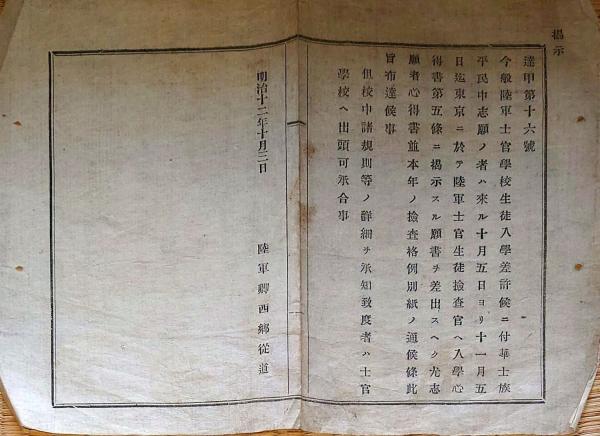 揭示
達甲第十六號
今般陸軍士官學校生徒入學差許候ニ付華士族
平民中志願ノ者ハ來ル十月五日ヨリ十一月五
日迄東京ニ於テ陸軍士官生徒撿査官ヘ入學心
得書第五條ニ揭示スル願書ヲ差出スヘク尤志
願者心得書並本年ノ撿査格例別紙ノ通候條此
旨布達候事
但校中諸規則等ノ詳細ヲ承知致度者ハ士官
學校ヘ出頭可承合事
明治十二年十月三日
陸軍卿西鄕從道